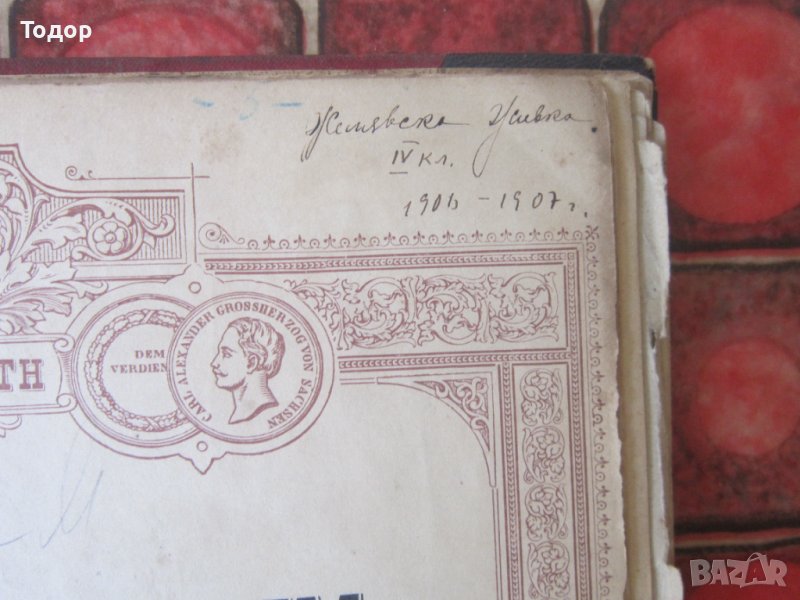 Тодор
- 3 -
IV кл.
1906 - 1907 г.
CARL ALEXANDER GROSSHERZOG VON SACHSEN
DEM
VERDIEN
TH
BAZAR